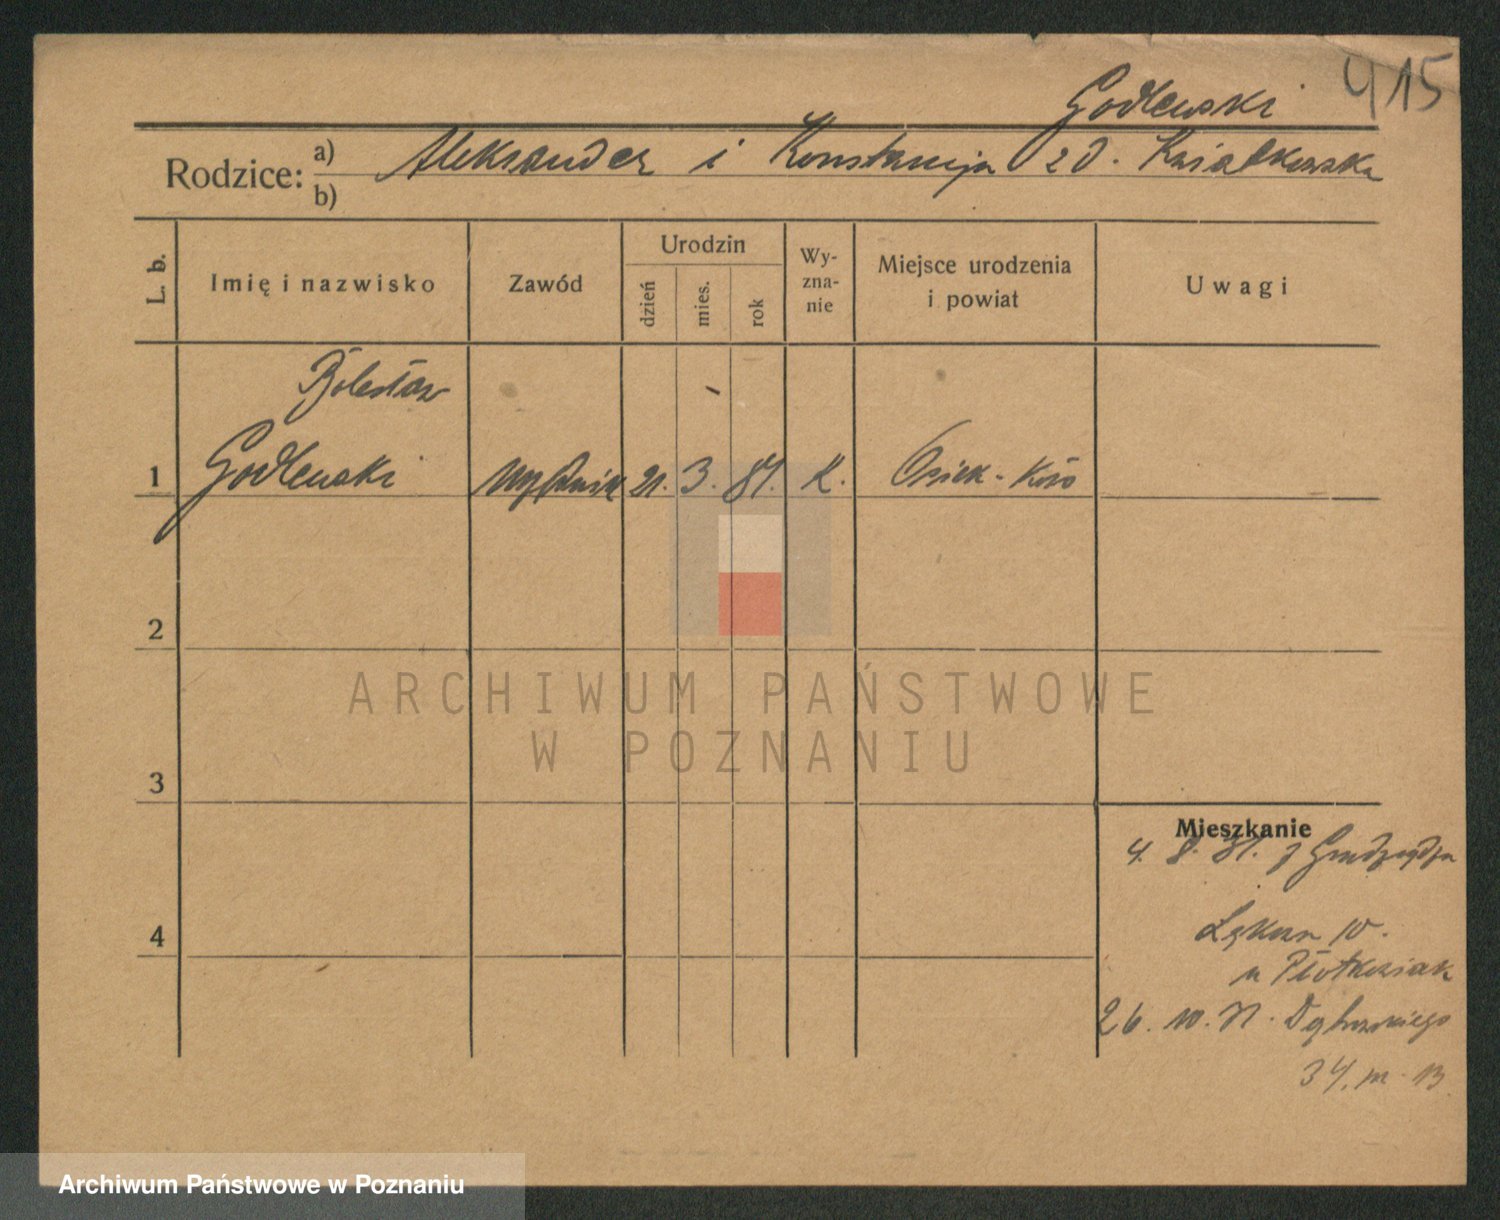 415
Godlewski
Rodzice: a) Aleksander i Konstancja zd. Kwiatkowska
b)
L. b.
Imię i nazwisko
Zawód
Urodzin
dzień
mies.
rok
Wy-
zna-
nie
Miejsce urodzenia
i powiat
Uwagi
Bolesław
1 Godlewski 21. 3. 87. K. Osiek - Koło
2
3
4
Mieszkanie
4. 8. 31. z Grudziądza
Łąkowa 10.
u Piotkowiak
26. 10. 31. Dąbrowskiego
34. m. 13
ARCHIWUM PAŃSTWOWE
W POZNANIU
Archiwum Państwowe w Poznaniu